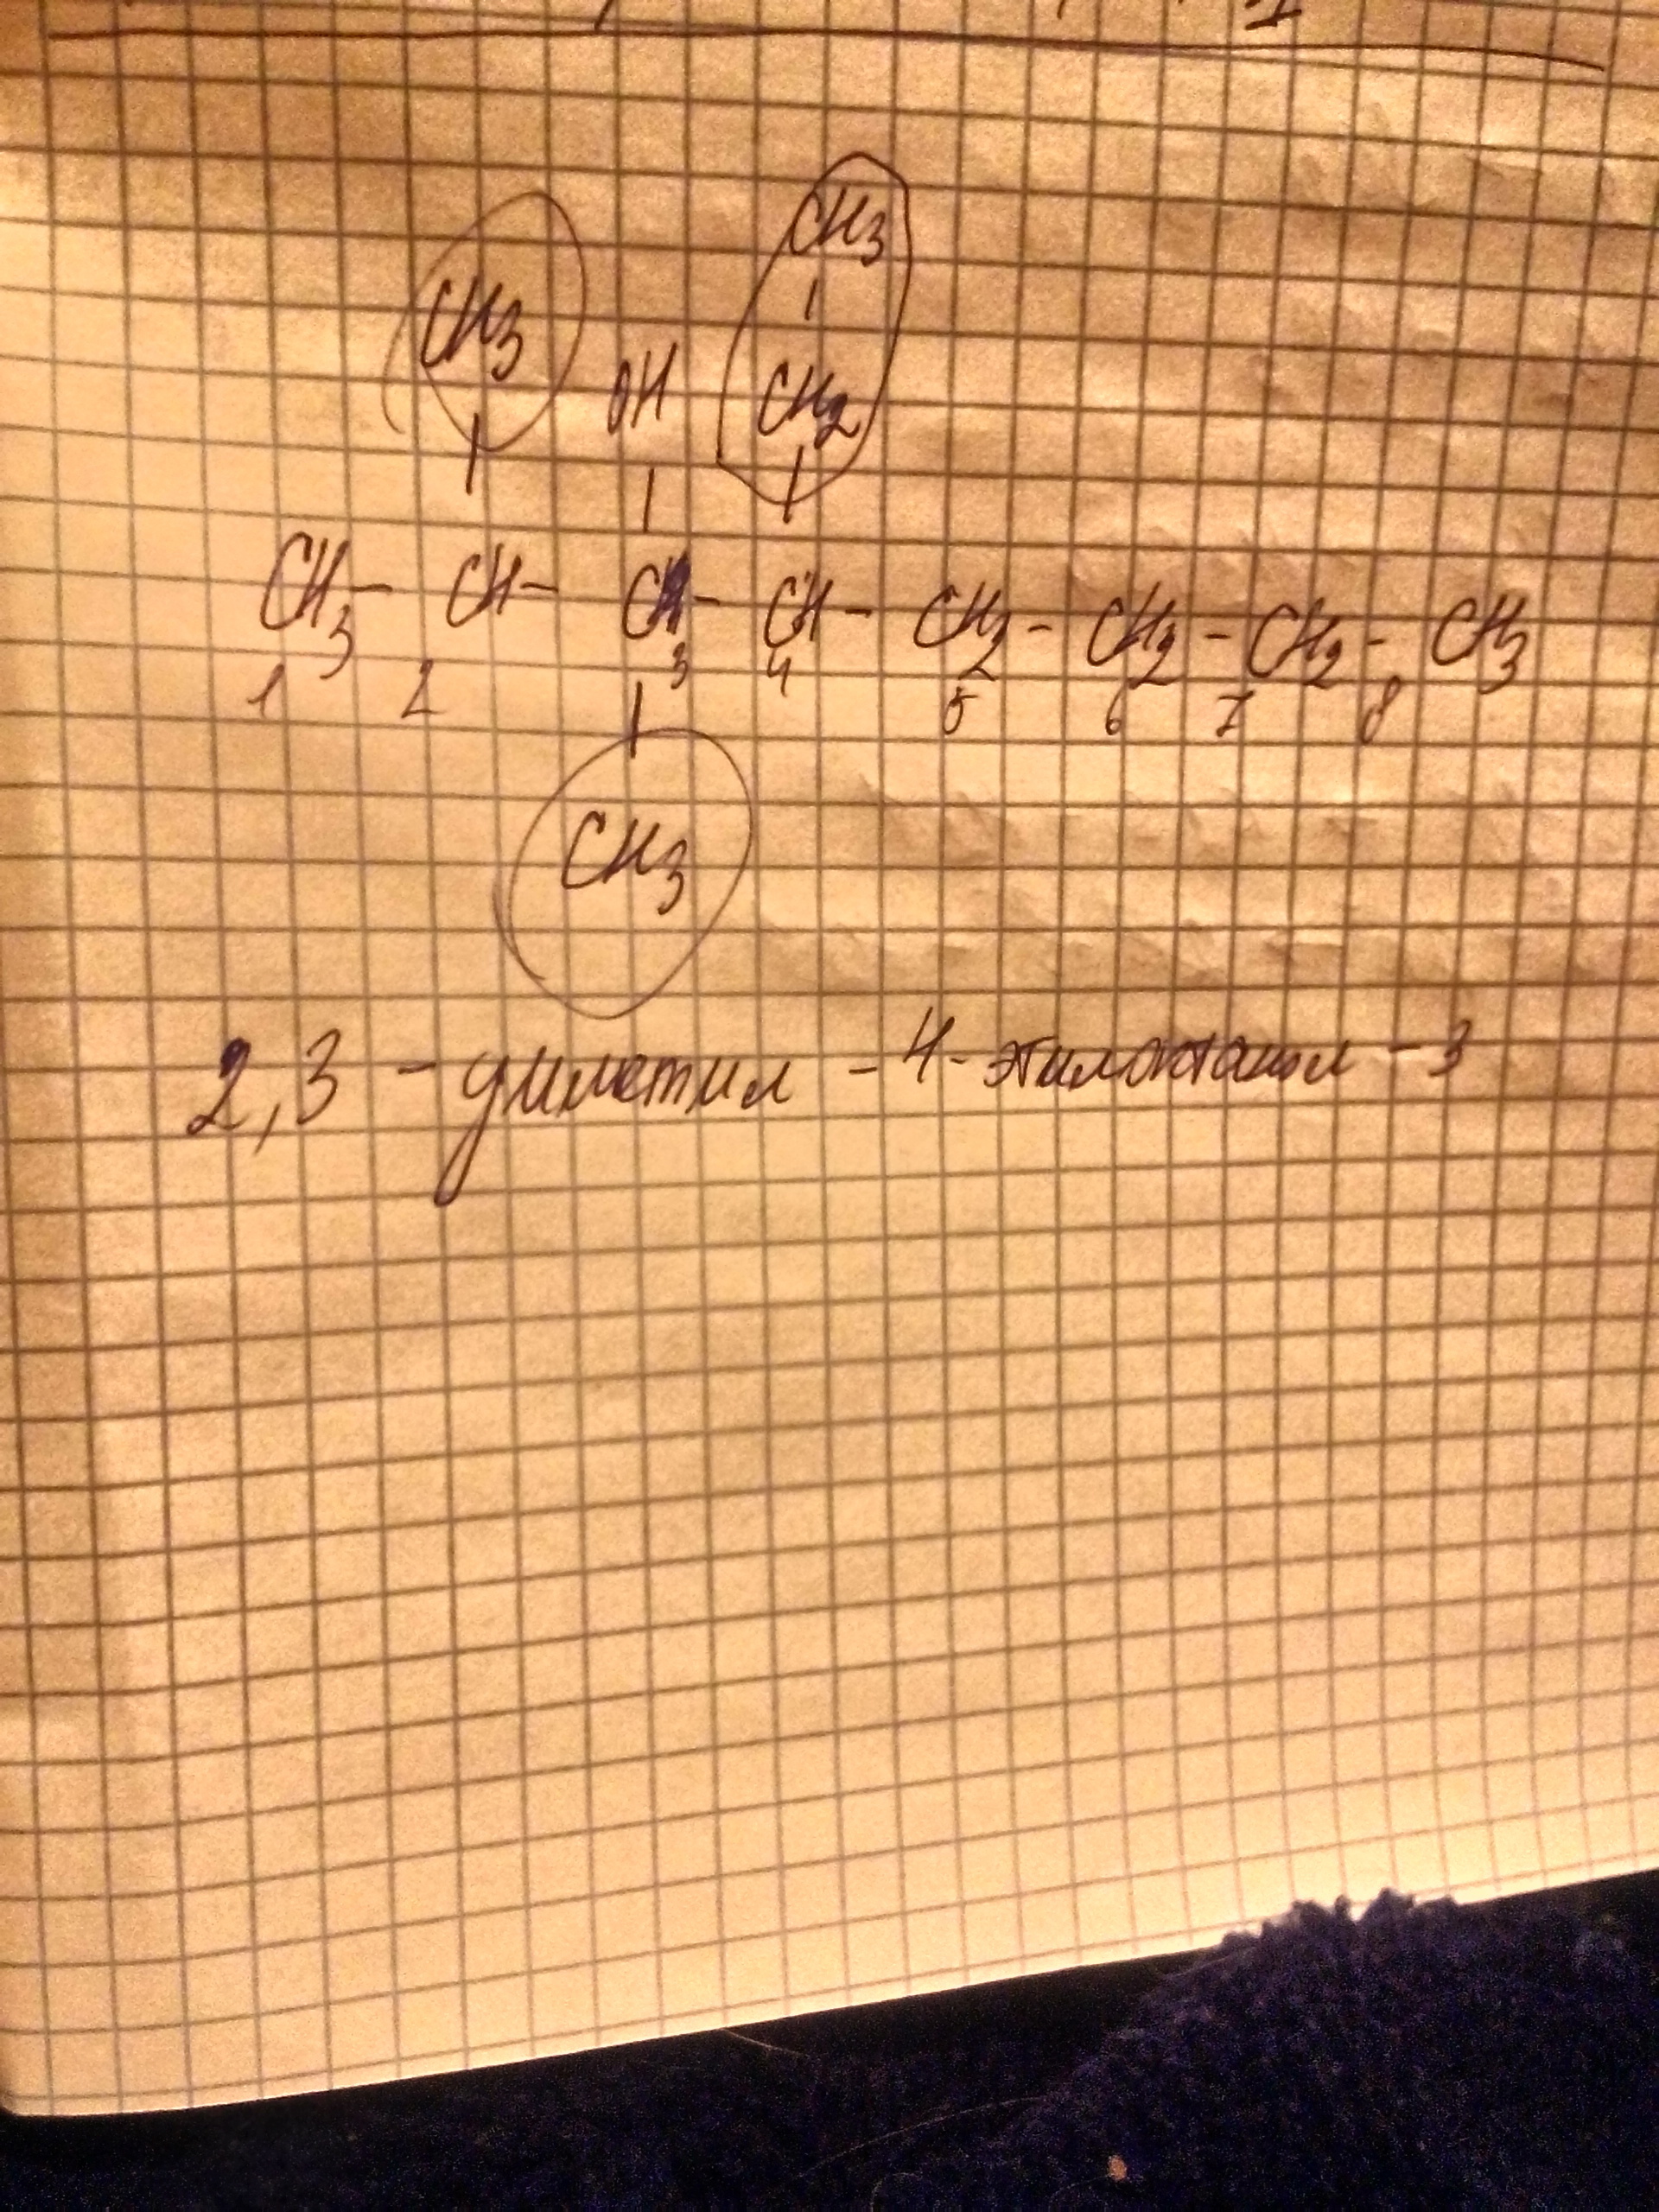 CH3
CH3
OH
CH2
CH3 - CH - C - CH - CH2 - CH2 - CH2 - CH3
1 2 3 4 5 6 7 8
CH3
2,3 - диметил - 4 - этилоктанол - 3